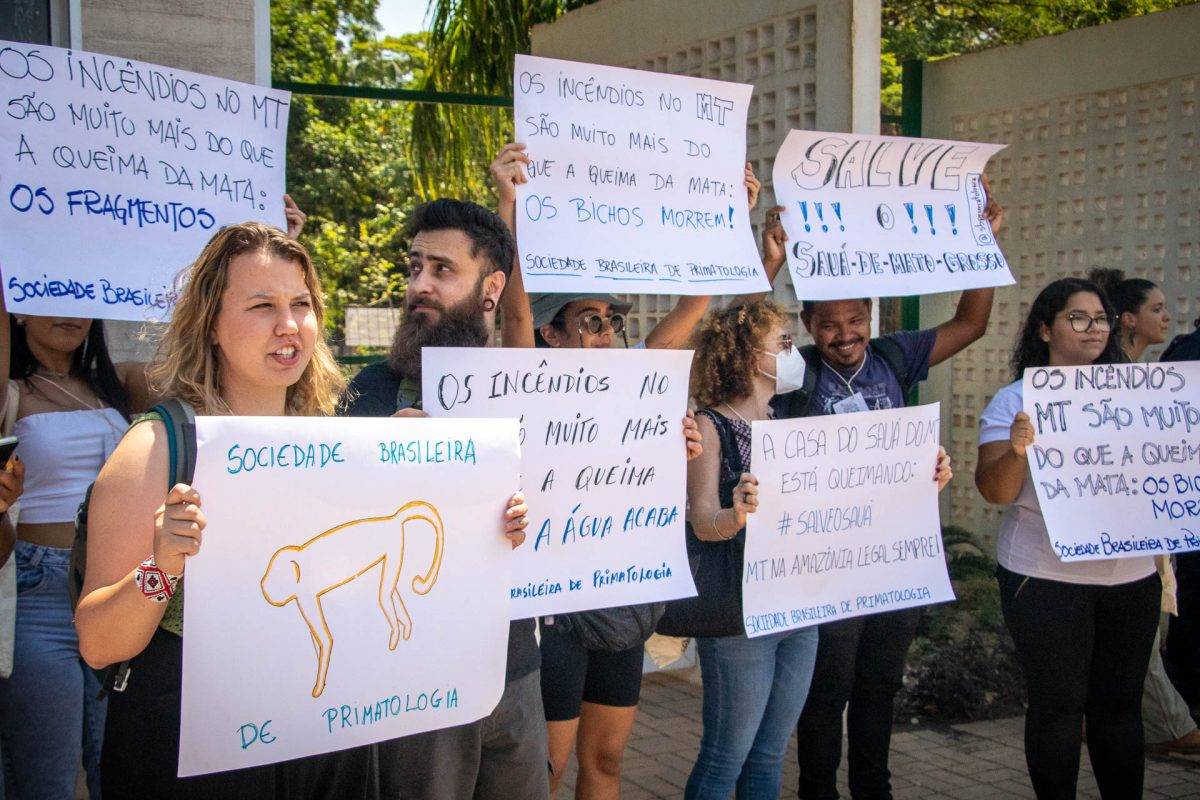 OS INCÊNDIOS NO MT
SÃO MUITO MAIS DO QUE
A QUEIMA DA MATA:
OS FRAGMENTOS
SOCIEDADE BRASILEIR
OS INCÊNDIOS NO MT
SÃO MUITO MAIS DO
QUE A QUEIMA DA MATA:
OS BICHOS MORREM!
SOCIEDADE BRASILEIRA DE PRIMATOLOGIA
SALVE
!!! O !!!
SAUÁ-DE-MATO-GROSSO
SOCIEDADE BRASILEIRA
DE PRIMATOLOGIA
OS INCÊNDIOS NO
MUITO MAIS
A QUEIMA
A ÁGUA ACABA
BRASILEIRA DE PRIMATOLOGIA
A CASA DO SAUÁ DO MT
ESTÁ QUEIMANDO:
#SALVEOSAUA
MT NA AMAZÔNIA LEGAL SEMPRE!
SOCIEDADE BRASILEIRA DE PRIMATOLOGIA
OS INCÊNDIOS
MT SÃO MUITO
DO QUE A QUEIM
DA MATA: OS BIC
MORR
SOCIEDADE BRASILEIRA DE PRI